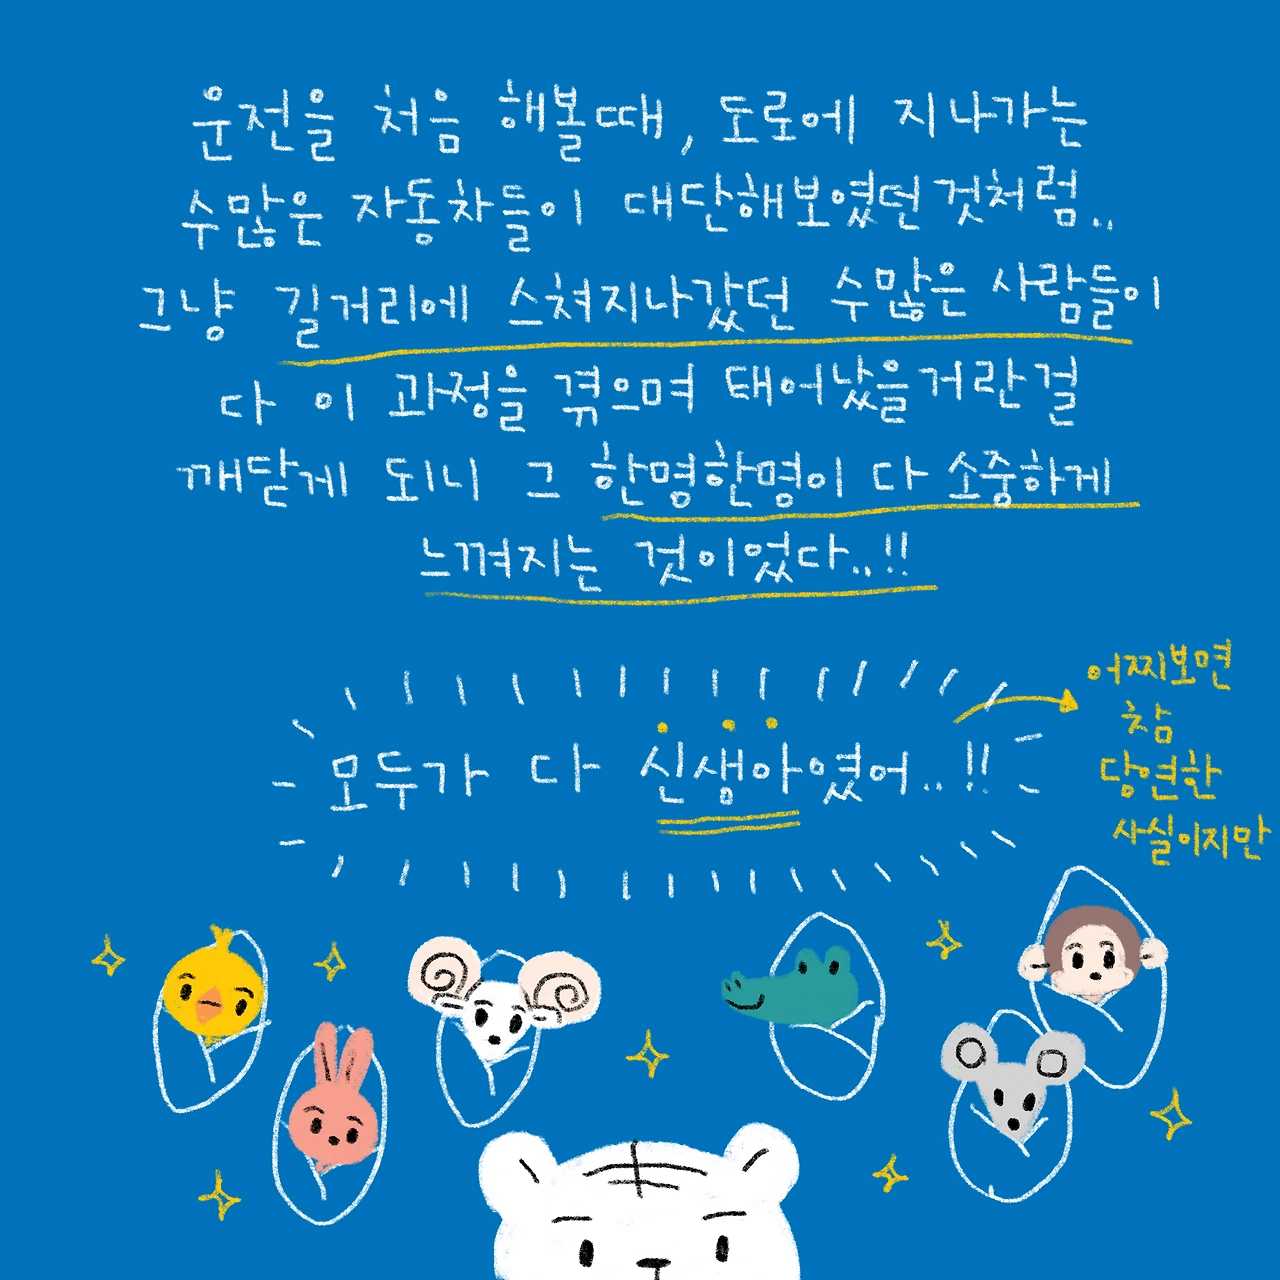 운전을 처음 해볼때, 도로에 지나가는
수많은 자동차들이 대단해보였던 것처럼..
그냥 길거리에 스쳐지나갔던 수많은 사람들이
다 이 과정을 겪으며 태어났을거란걸
깨닫게 되니 그 한명한명이 다 소중하게
느껴지는 것이었다..!!
모두가 다 신생아였어..!!
어찌보면
참
당연한
사실이지만